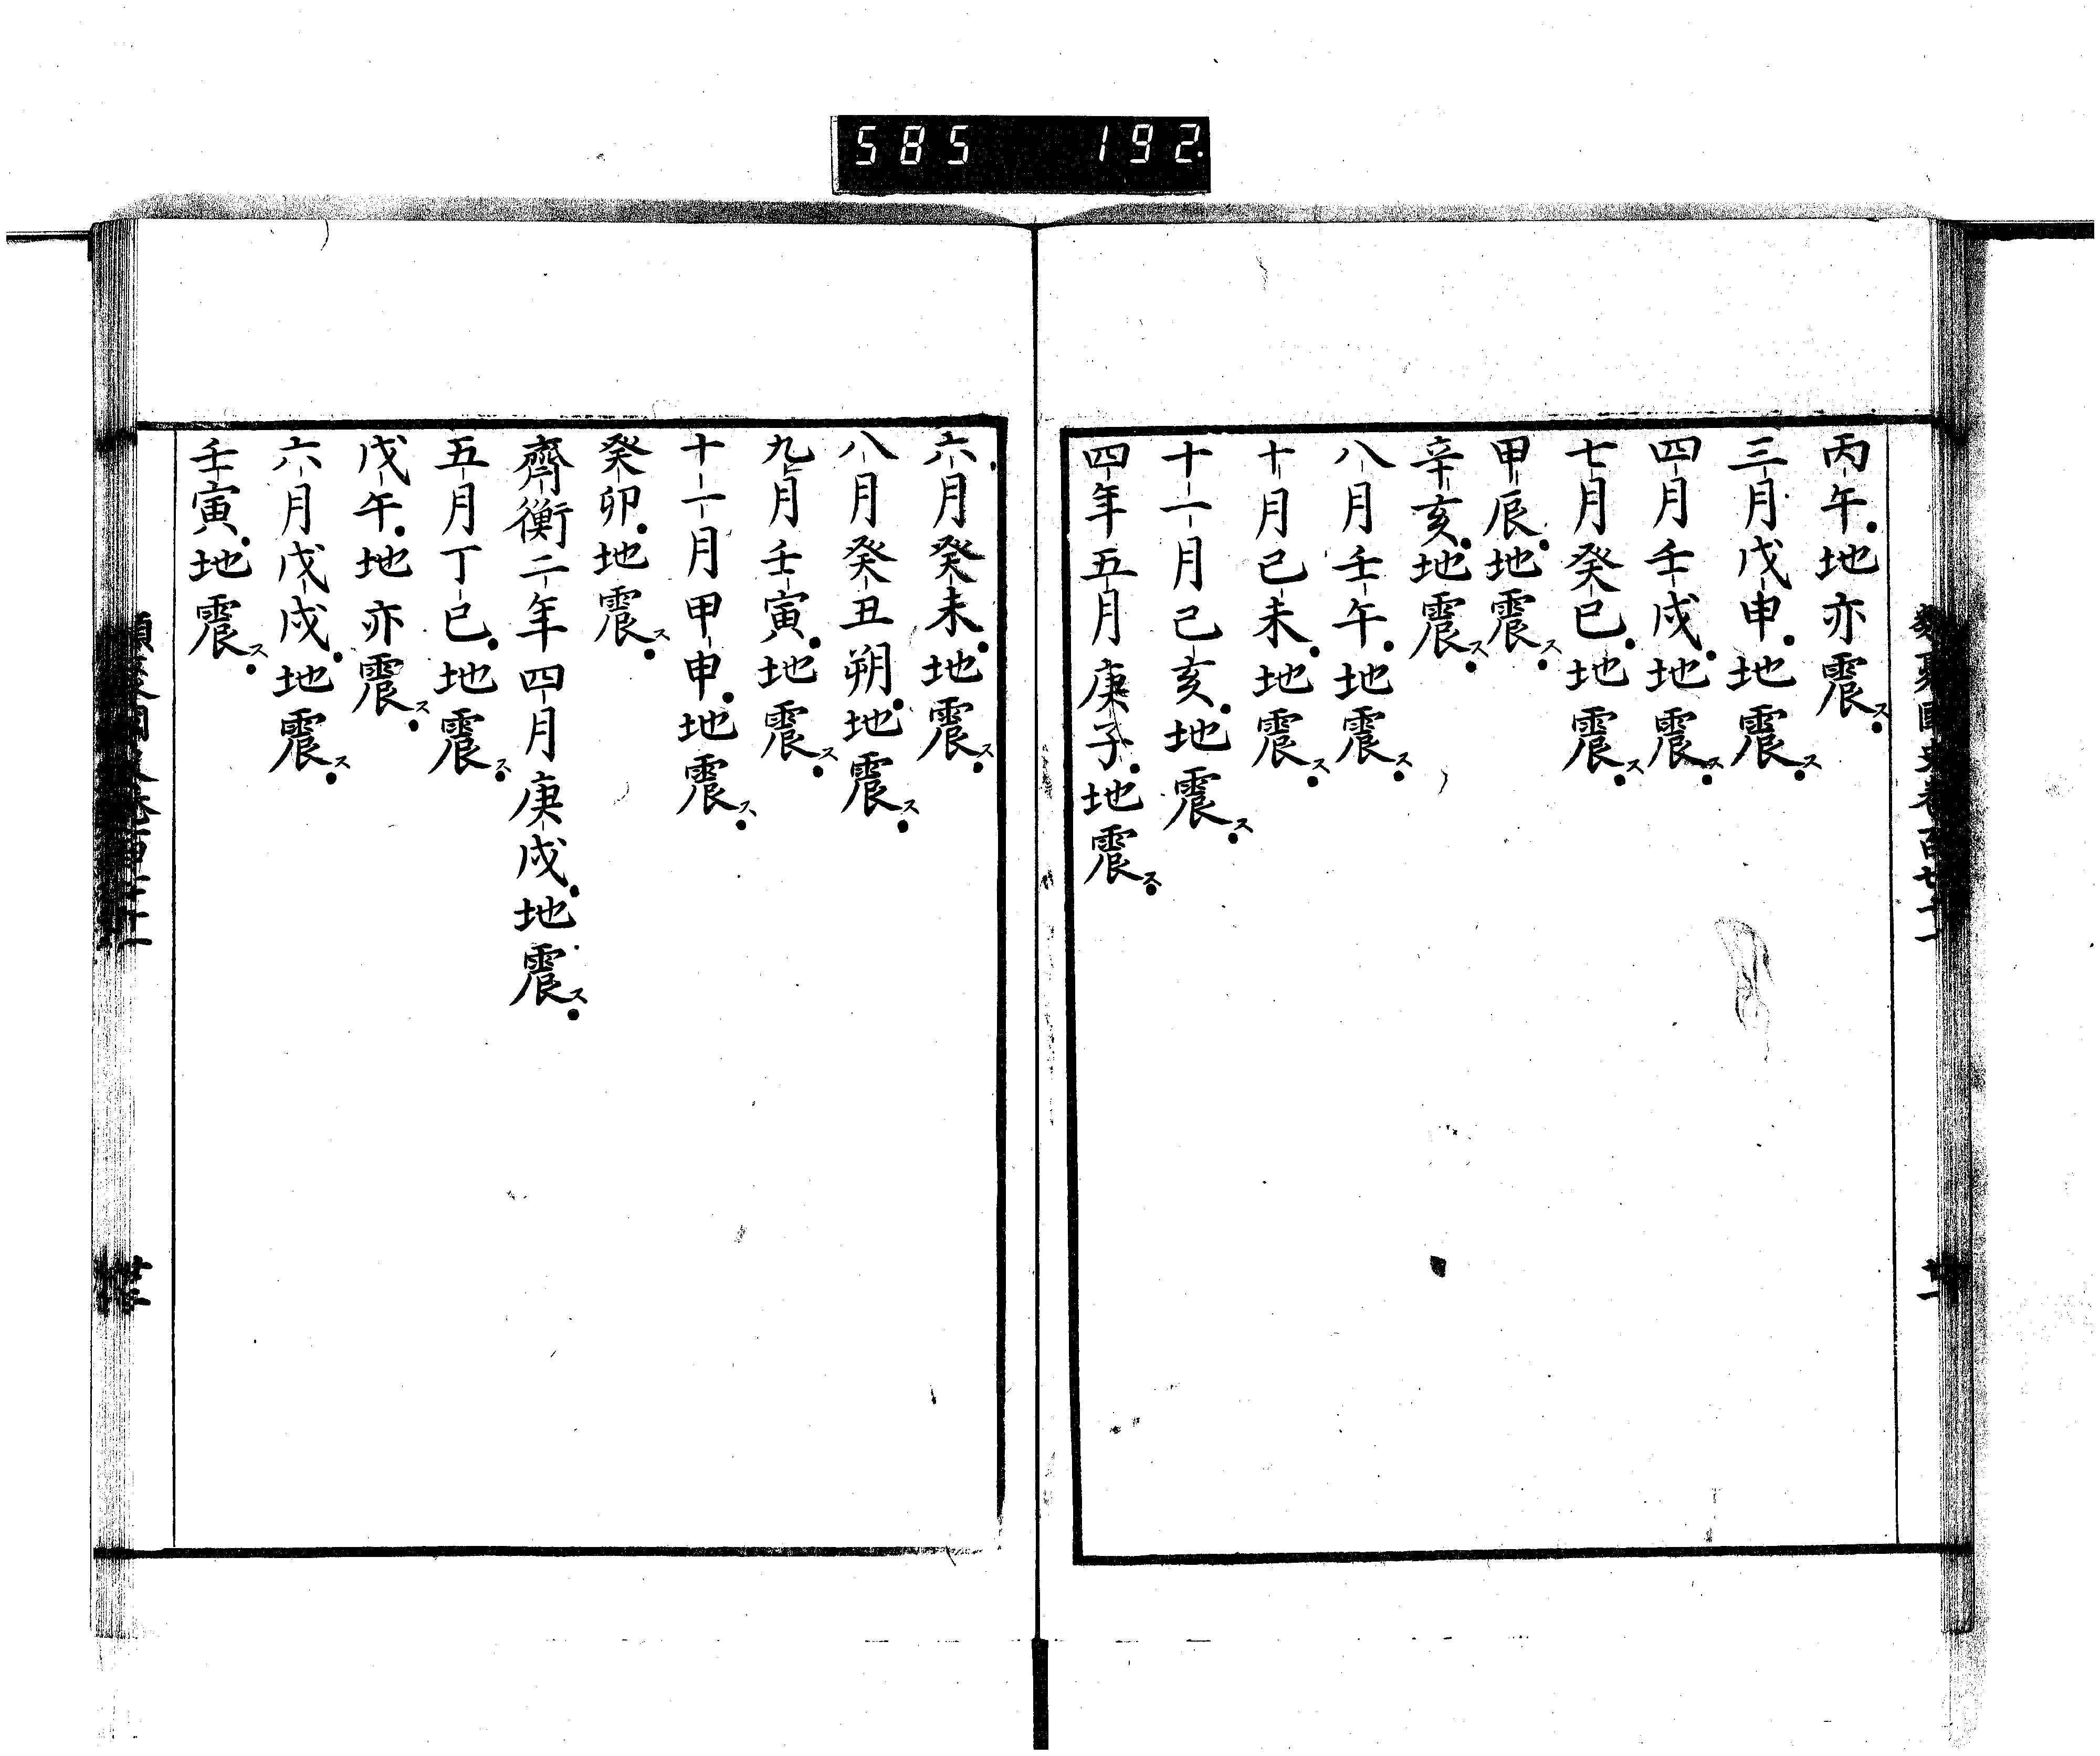 585 192
丙午地亦震ス
三月戊申地震ス
四月壬戌地震ス
七月癸巳地震ス
甲辰地震ス
辛亥地震ス
八月壬午地震ス
十月己未地震ス
十一月己亥地震ス
四年五月庚子地震ス
六月癸未地震ス
八月癸丑朔地震ス
九月壬寅地震ス
十一月甲申地震ス
癸卯地震ス
齊衡二年四月庚戌地震ス
五月丁巳地震ス
戊午地亦震ス
六月戊戌地震ス
壬寅地震ス